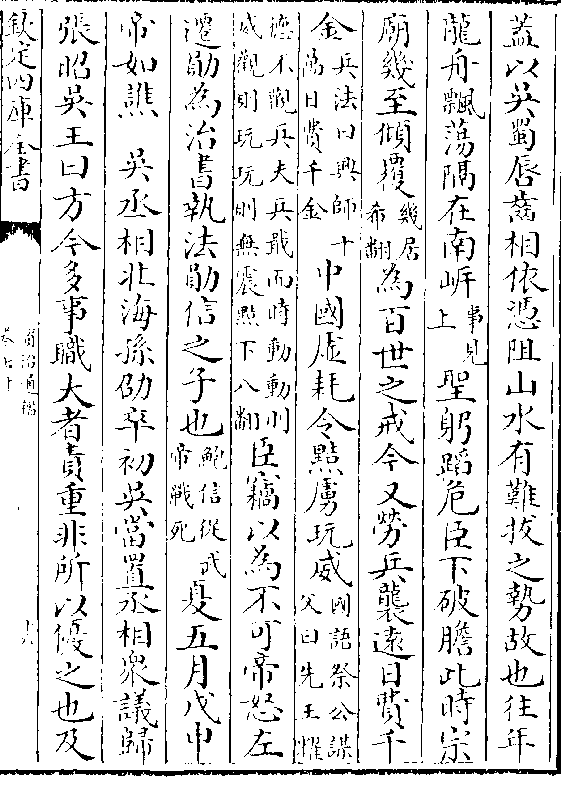 蓋以吳蜀唇齒相依憑阻山水有難拔之勢故也往年
龍舟飄蕩隔在南岸事見上聖躬蹈危臣下破膽此時宗
廟幾至傾覆幾居希翻為百世之戒今又勞兵襲遠日費千
金兵法曰興師十萬日費千金中國虛耗令黠虜玩威國語祭公謀父曰先王耀
德不觀兵夫兵戢而時動動則威觀則玩玩則無震黠下八翻臣竊以為不可帝怒左
遷勛為治書執法勛信之子也鮑信從武帝戰死夏五月戊申
帝如譙 吳丞相北海孫劭卒初吳當置丞相衆議歸
張昭吳王曰方今多事職大者責重非所以優之也及
欽定四庫全書
資治通鑑
卷七十